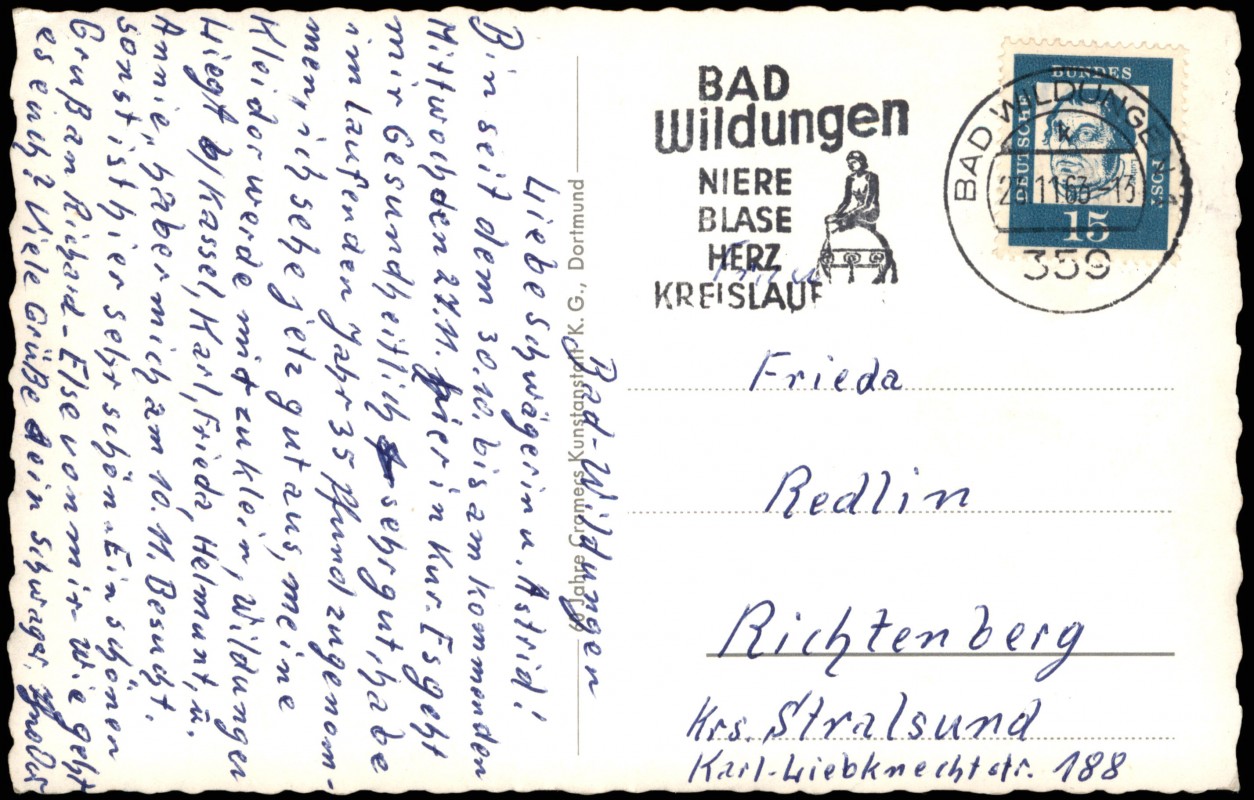 Bad-Wildungen
Liebe Schwägerin u. Astrid!
Bin seit dem 30.10. bis am kommenden
Mittwoch den 27.11. hier in Kur. Es geht
mir Gesundheitlich sehr gut, habe
im laufenden Jahr 35 Pfund zugenom-
men, ich sehe jetz gut aus, meine
Kleidor werde mir zu klein, Wildungen
Liegt b/ Kassel, Karl, Frieda, Helmunt, u.
Annie, haber mich am 10. 11. Besucht.
sonst ist hier sehr schön. Ein schönen
Gruß an Richard-Else von mir- Wie geht
es euch? Viele Grüße dein Schwager,
60 Jahre Cramers Kunstanstalt K. G., Dortmund
BAD
Wildungen
NIERE
BLASE
HERZ
KREISLAUF
BAD WILDUNGEN
k
11.63-13
359
DEUTSCHE
BUNDES
POST
15
Frieda
Redlin
Richtenberg
Krs. Stralsund
Karl-Liebknechtstr. 188